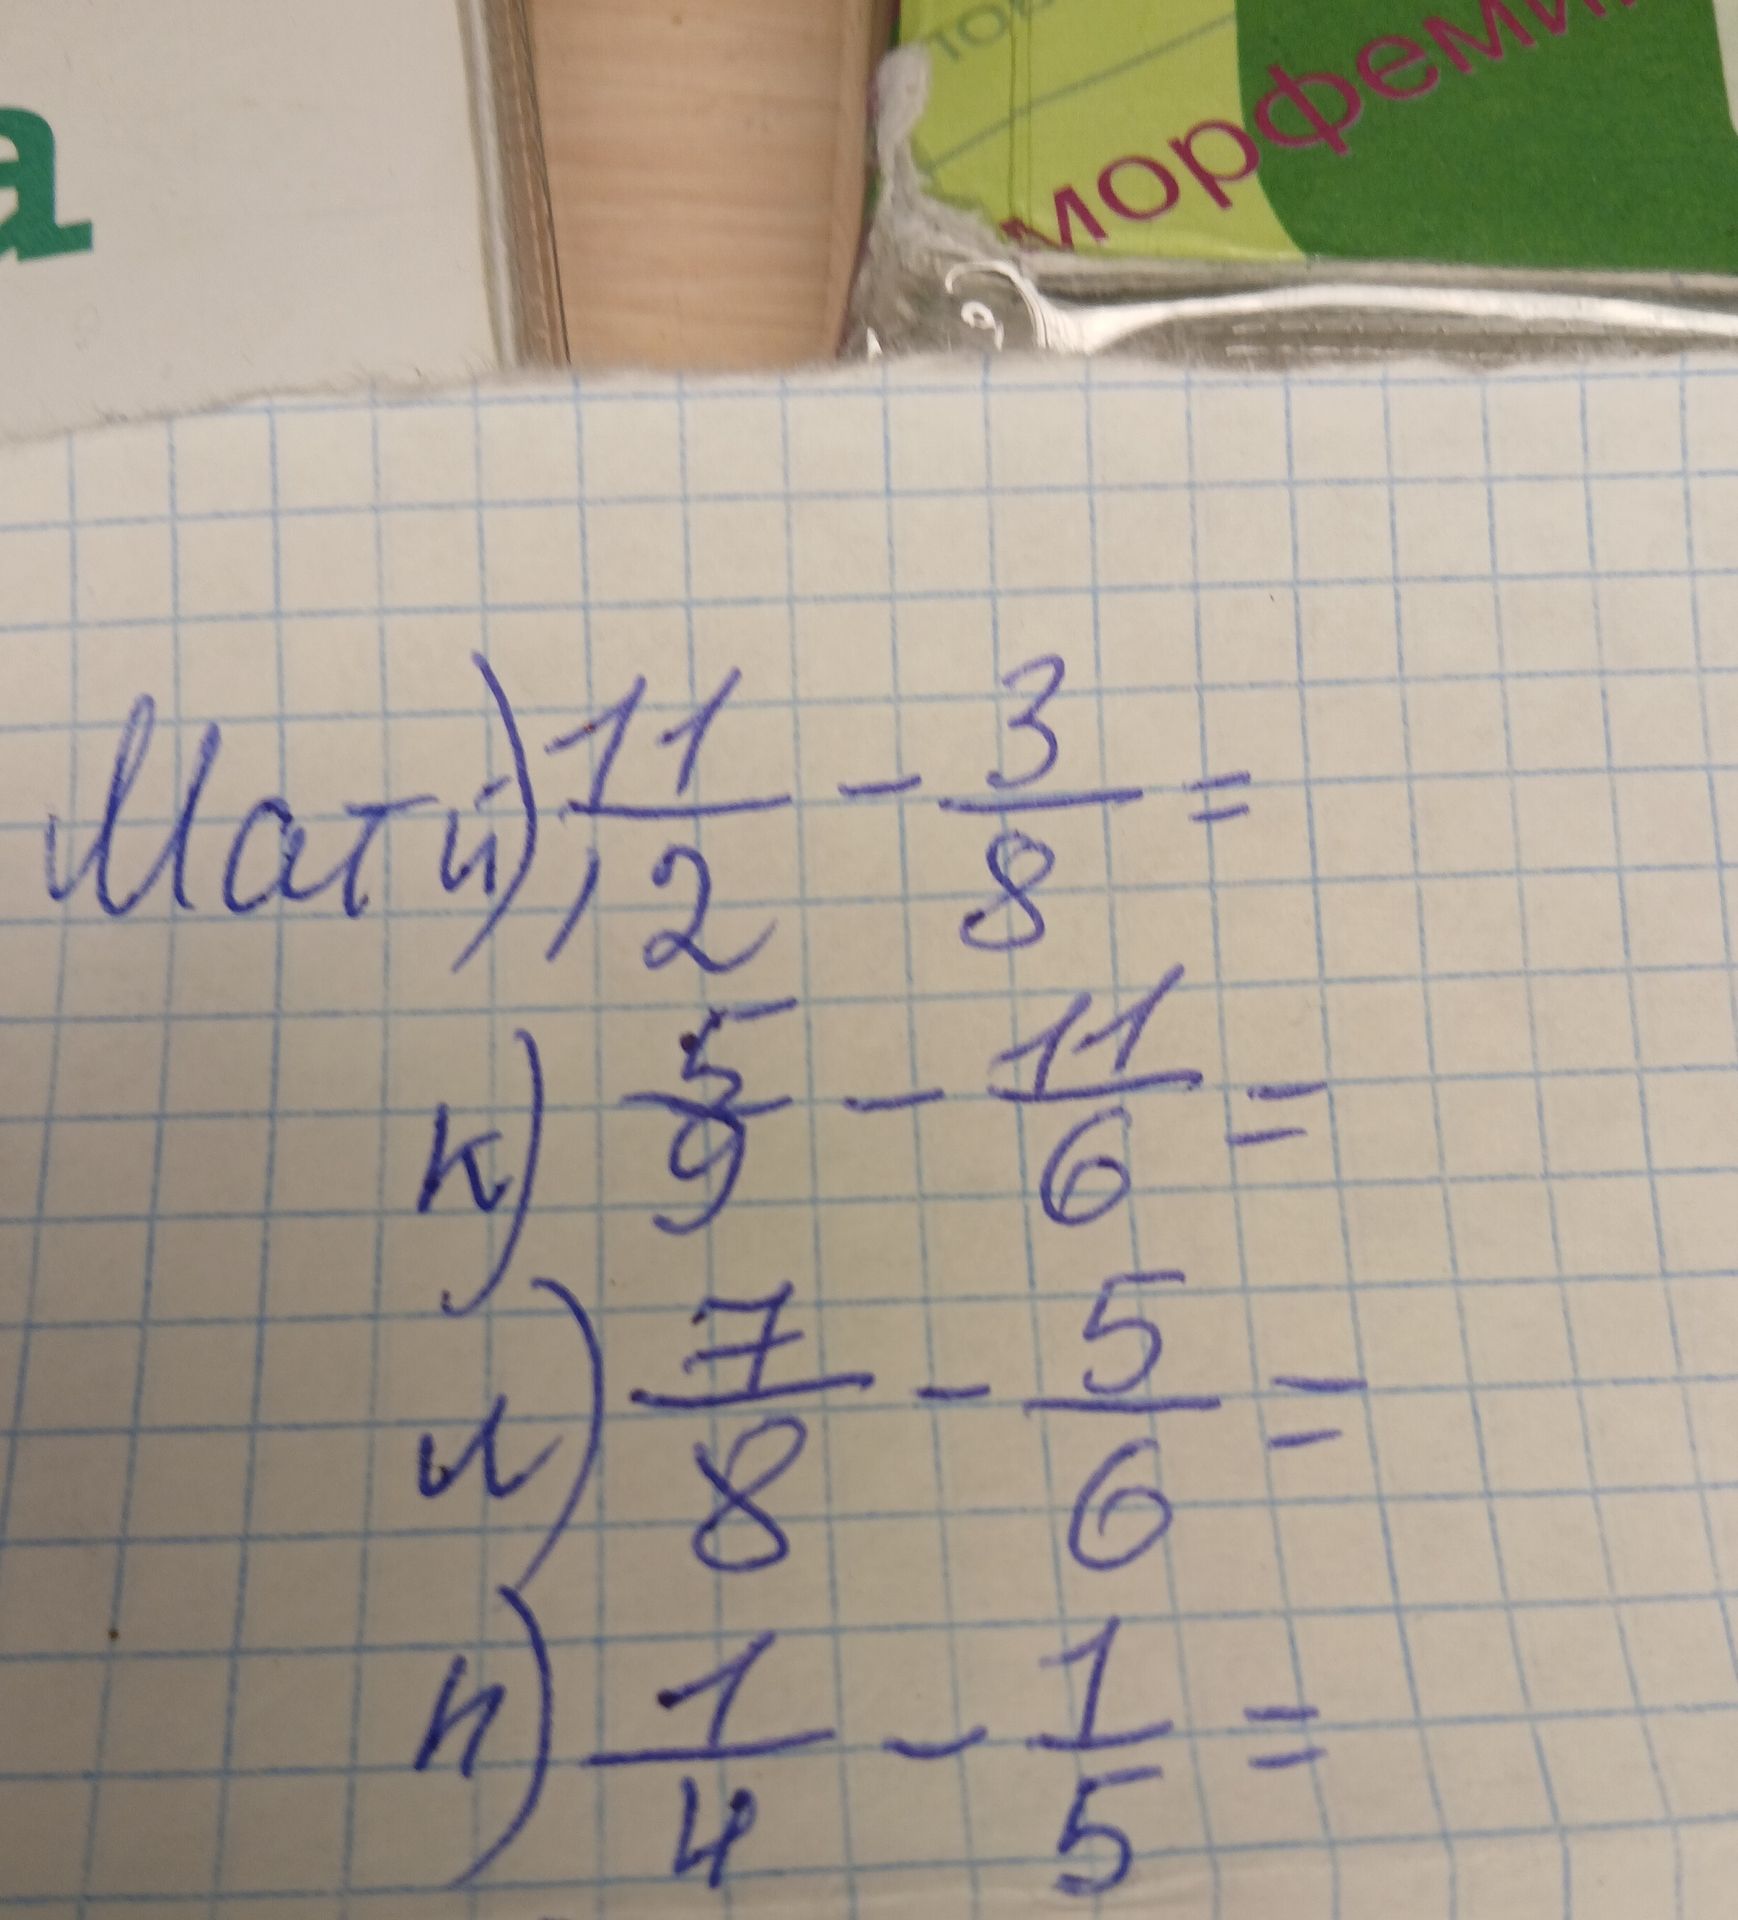 а
морфеми
Мат й) 11/12 - 3/8 =
к) 5/9 - 11/6 =
л) 7/8 - 5/6 =
н) 1/4 - 1/5 =